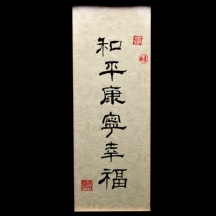 和平康寧幸福